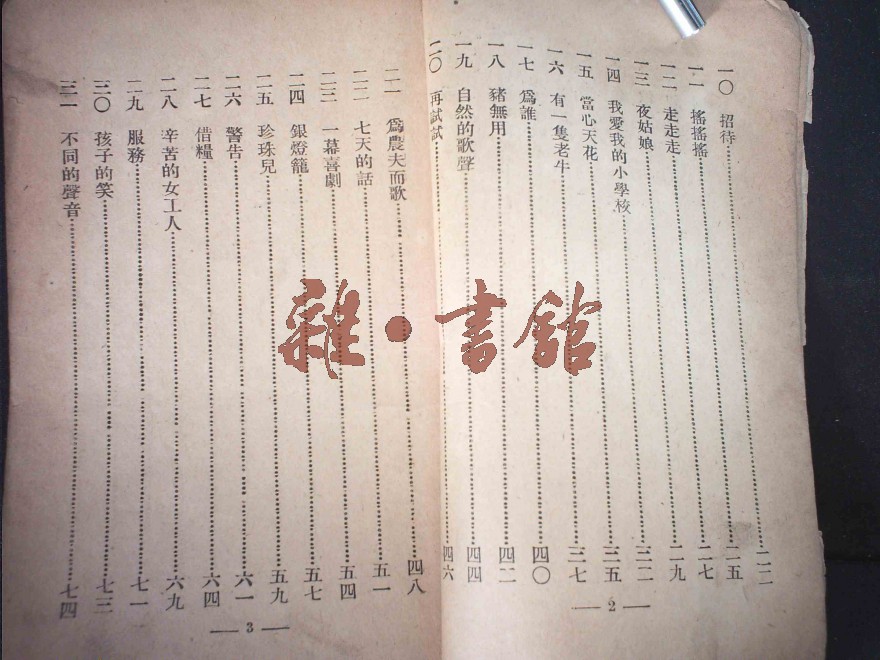 一〇 招待……二二
一一 搖搖搖……二五
一二 走走走……二七
一三 夜姑娘……二九
一四 我愛我的小學校……三二
一五 當心天花……三五
一六 有一隻老牛……三七
一七 爲誰……四〇
一八 豬無用……四二
一九 自然的歌聲……四四
二〇 再試試……四六
— 2 —
二一 爲農夫而歌……四八
二二 七天的話……五一
二三 一幕喜劇……五四
二四 銀燈籠……五七
二五 珍珠兒……五九
二六 警告……六一
二七 借糧……六四
二八 辛苦的女工人……六九
二九 服務……七一
三〇 孩子的笑……七三
三一 不同的聲音……七四
— 3 —
雜・書館